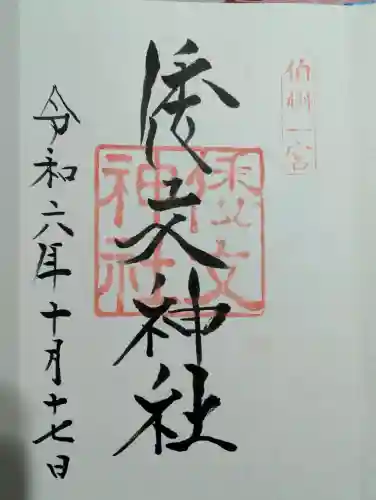 伯州一宮
倭文神社
倭文神社
令和六年十月十七日